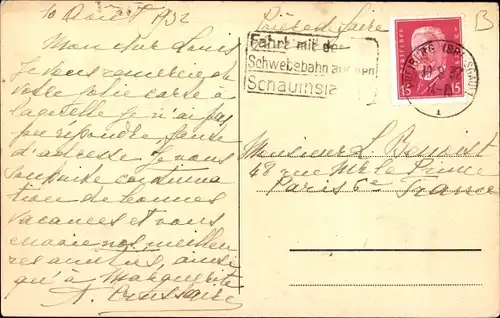 10 Août 1932
Monsieur Louis
Je vous remercie de
votre jolie carte à
laquelle je n'ai pas
pu répondre faute
d'adresse. Je vous
souhaite continua
tion de bonnes
vacances et vous
envoie nos meilleu
res amitiés, ainsi
qu'à Marguerite
A.
Prière de faire
B
Fahrt mit der
Schwebebahn auf den
Schauinsla
FREIBURG (BREISGAU)
15 15
Monsieur L. Benoist
48 rue Mr le Prince
Paris 6e France